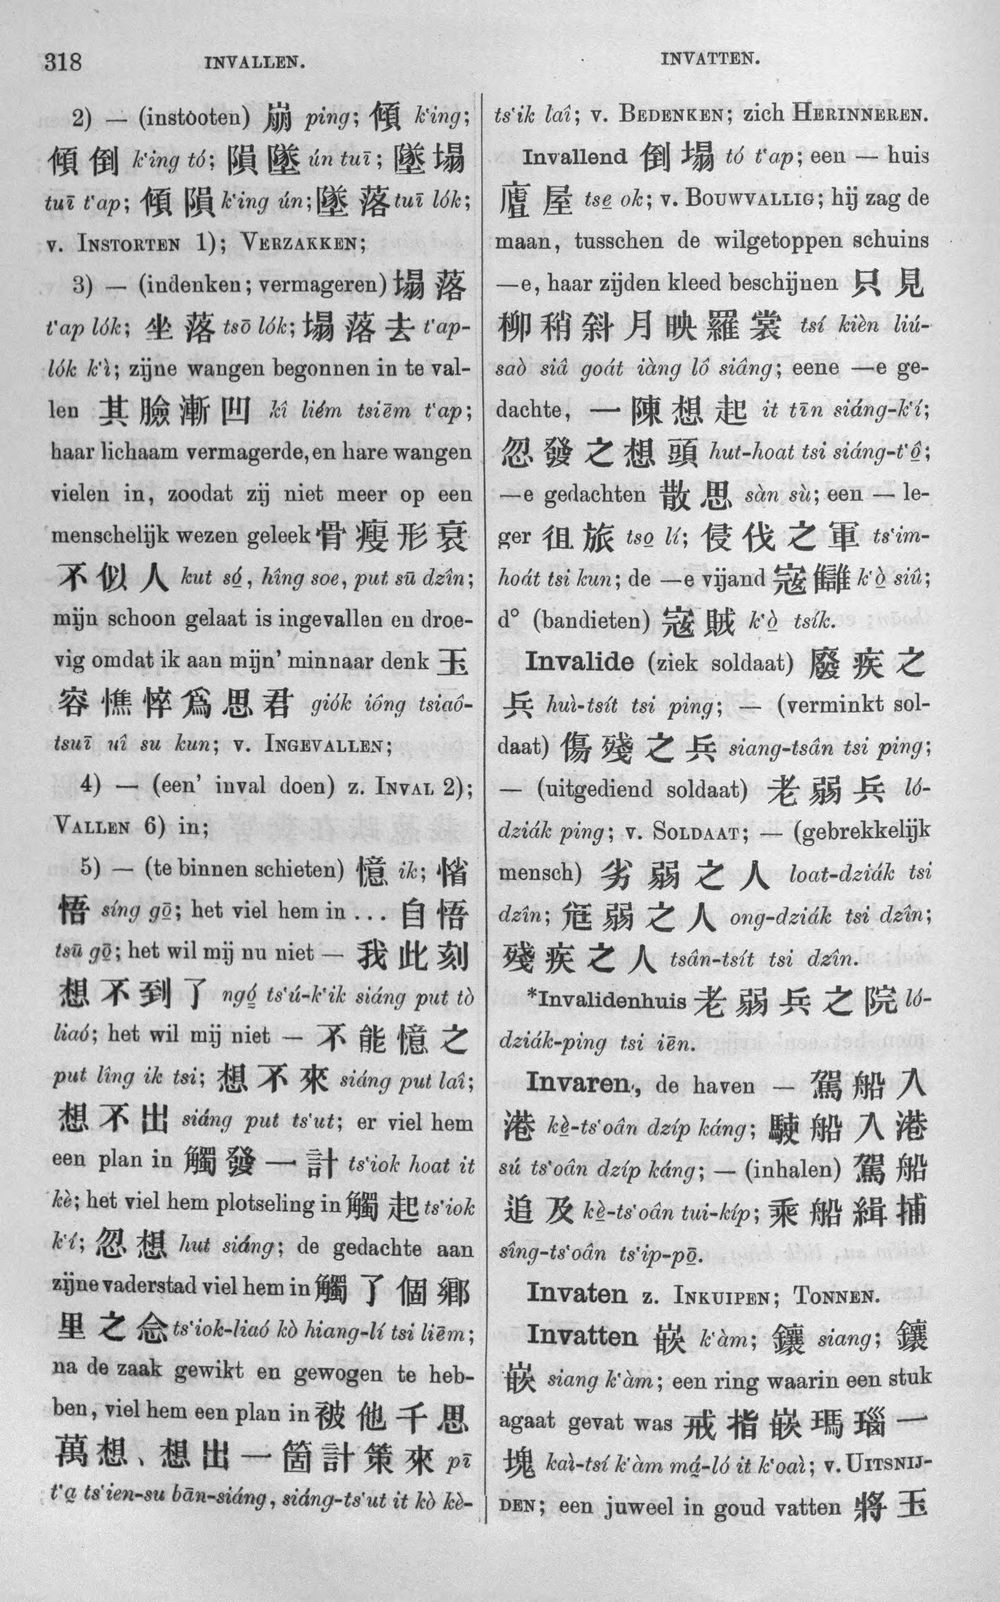 318 INVALLEN. INVATTEN.
2) — (instooten) 崩 ping; 傾 k'ing;
傾倒 k'ing tó; 隕墜 ún tuī; 墜塌
tuī t'ap; 傾隕 k'ing ún; 墜落 tuī lók;
v. INSTORTEN 1); VERZAKKEN;
3) — (indenken; vermageren) 塌落
t'ap lók; 坐落 tsō lók; 塌落去 t'ap-
lók k'ì; zijne wangen begonnen in te val-
len 其臉漸凹 kî liém tsiēm t'ap;
haar lichaam vermagerde, en hare wangen
vielen in, zoodat zij niet meer op een
menschelijk wezen geleek 骨瘦形衰
不似人 kut só̤, hîng soe, put sū dzîn;
mijn schoon gelaat is ingevallen en droe-
vig omdat ik aan mijn' minnaar denk 玉
容憔悴爲思君 giók iông tsiaô-
tsuī uî su kun; v. INGEVALLEN;
4) — (een' inval doen) z. INVAL 2);
VALLEN 6) in;
5) — (te binnen schieten) 憶 ik; 惛
悟 síng gō̤; het viel hem in ... 自悟
tsū gō̤; het wil mij nu niet — 我此刻
想不到了 ngó̤ ts'ú-k'ik siáng put tò
liaó; het wil mij niet — 不能憶之
put lîng ik tsi; 想不來 siáng put laî;
想不出 siáng put ts'ut; er viel hem
een plan in 觸發一計 ts'iok hoat it
kè; het viel hem plotseling in 觸起 ts'iok
k'í; 忽想 hut siáng; de gedachte aan
zijne vaderstad viel hem in 觸了個鄉
里之念 ts'iok-liaó kò hiang-lí tsi liēm;
na de zaak gewikt en gewogen te heb-
ben, viel hem een plan in 被他千思
萬想、想出一箇計策來 pī
t'a̤ ts'ien-su bān-siáng, siáng-ts'ut it kò kè-
ts'ik laî; v. BEDENKEN; zich HERINNEREN.
Invallend 倒塌 tó t'ap; een — huis
𢉩屋 tse̤ ok; v. BOUWVALLIG; hij zag de
maan, tusschen de wilgetoppen schuins
—e, haar zijden kleed beschijnen 只見
柳稍斜月映羅裳 tsí kièn liú-
saò siâ goát iàng lô siâng; eene —e ge-
dachte, 一陳想起 it tīn siáng-k'í;
忽發之想頭 hut-hoat tsi siáng-t'ô̤;
—e gedachten 散思 sàn sù; een — le-
ger 徂旅 tso̤ lí; 侵伐之軍 ts'im-
hoát tsi kun; de —e vijand 寇讎 k'ò̤ siû;
d° (bandieten) 寇賊 k'ò̤ tsík.
Invalide (ziek soldaat) 廢疾之
兵 huì-tsít tsi ping; — (verminkt sol-
daat) 傷殘之兵 siang-tsân tsi ping;
— (uitgediend soldaat) 老弱兵 ló-
dziák ping; v. SOLDAAT; — (gebrekkelijk
mensch) 劣弱之人 loat-dziák tsi
dzîn; 尫弱之人 ong-dziák tsi dzîn;
殘疾之人 tsân-tsít tsi dzîn.
*Invalidenhuis 老弱兵之院 ló-
dziák-ping tsi iēn.
Invaren, de haven — 駕船入
港 kè̤-ts'oân dzíp káng; 駛船入港
sú ts'oân dzíp káng; — (inhalen) 駕船
追及 kè̤-ts'oân tui-kíp; 乘船緝捕
sîng-ts'oân ts'ip-pō̤.
Invaten z. INKUIPEN; TONNEN.
Invatten 嵌 k'àm; 鑲 siang; 鑲
嵌 siang k'àm; een ring waarin een stuk
agaat gevat was 戒指嵌瑪瑙一
塊 kaì-tsí k'àm má̤-ló it k'oaì; v. UITSNIJ-
DEN; een juweel in goud vatten 將玉